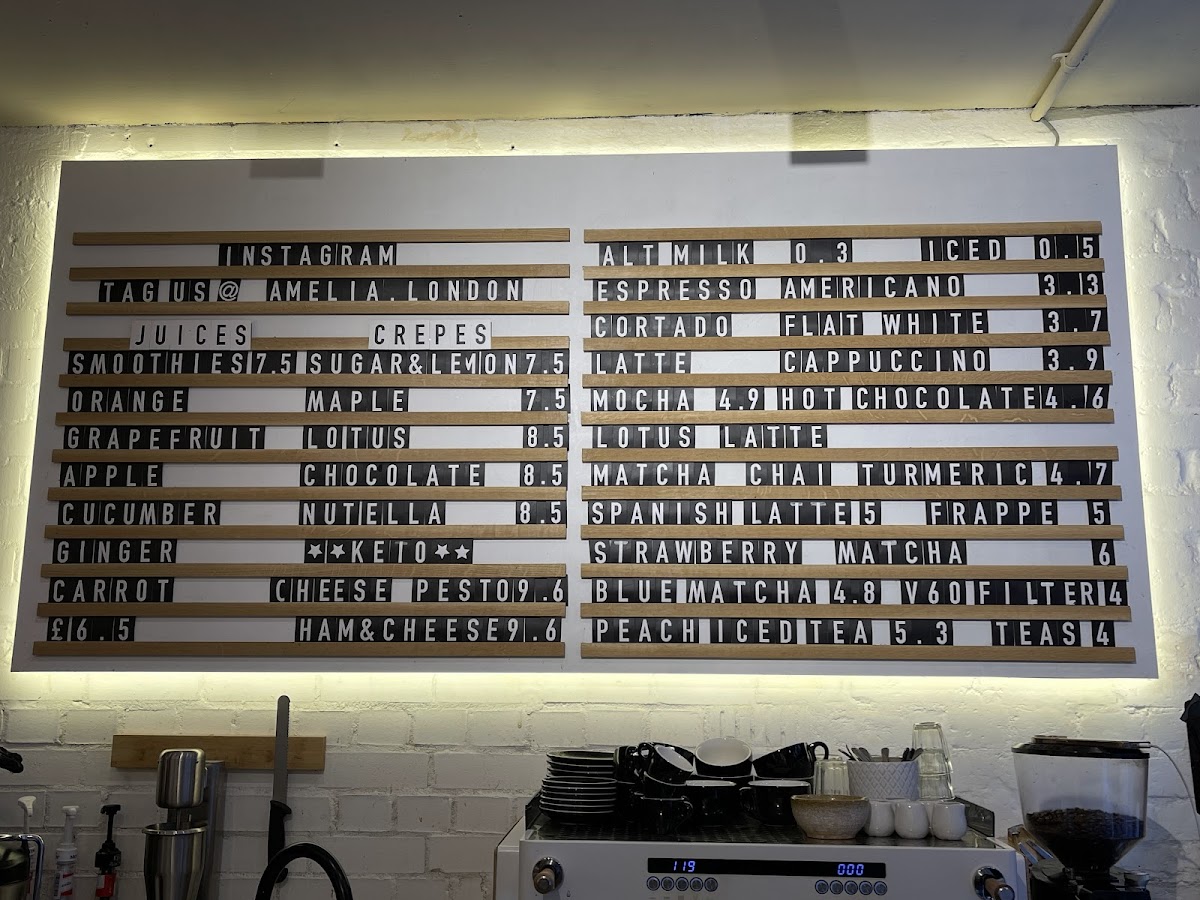 INSTAGRAM
TAG US@ AMELIA.LONDON
JUICES CREPES
SMOOTHIES 7.5 SUGAR&LEMON 7.5
ORANGE MAPLE 7.5
GRAPEFRUIT LOTUS 8.5
APPLE CHOCOLATE 8.5
CUCUMBER NUTELLA 8.5
GINGER ★★KETO★★
CARROT CHEESE PESTO 9.6
£6.5 HAM&CHEESE 9.6
ALT MILK 0.3 ICED 0.5
ESPRESSO AMERICANO 3.3
CORTADO FLAT WHITE 3.7
LATTE CAPPUCCINO 3.9
MOCHA 4.9 HOT CHOCOLATE 4.6
LOTUS LATTE
MATCHA CHAI TURMERIC 4.7
SPANISH LATTE 5 FRAPPE 5
STRAWBERRY MATCHA 6
BLUE MATCHA 4.8 V60 FILTER 4
PEACH ICED TEA 5.3 TEAS 4
119 000